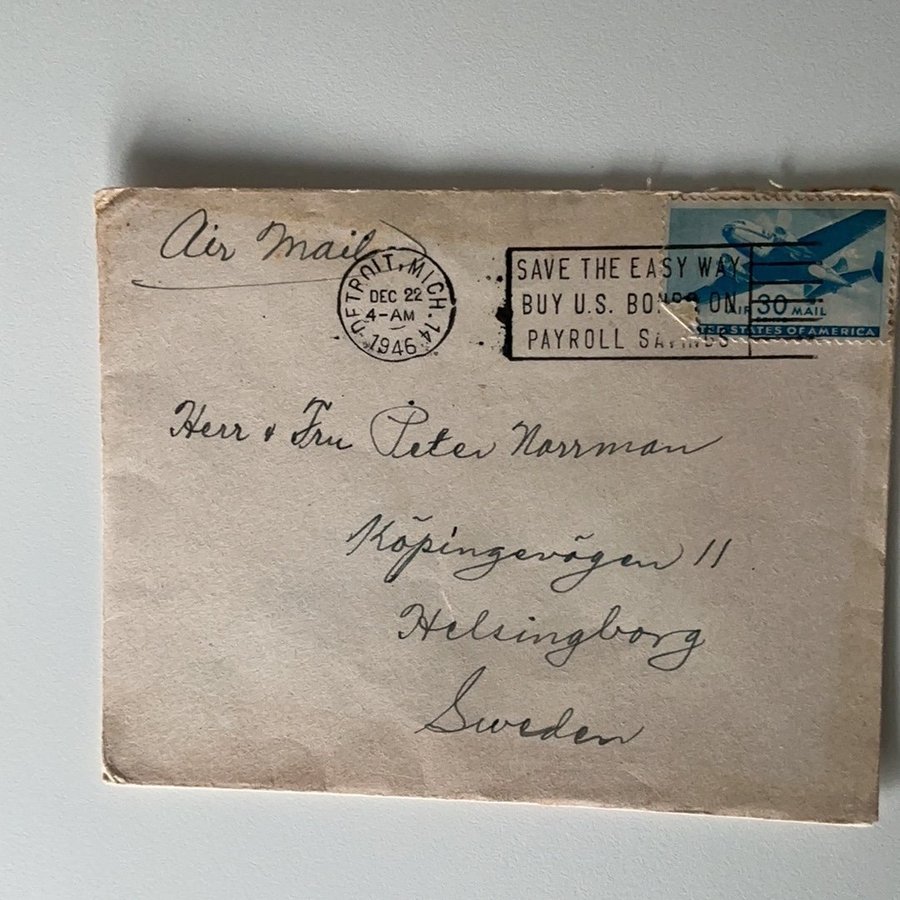 Air Mail
DETROIT, MICH. 14
DEC 22
4-AM
1946
SAVE THE EASY WAY
BUY U.S. BONDS ON
PAYROLL SAVINGS
AIR 30 MAIL
CENTS
UNITED STATES OF AMERICA
Herr & Fru Peter Norrman
Köpingevägen 11
Helsingborg
Sweden